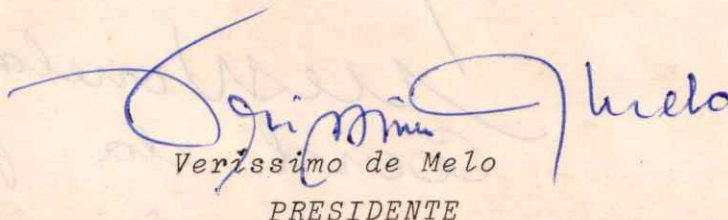 Verissimo de Melo
Veríssimo de Melo
PRESIDENTE